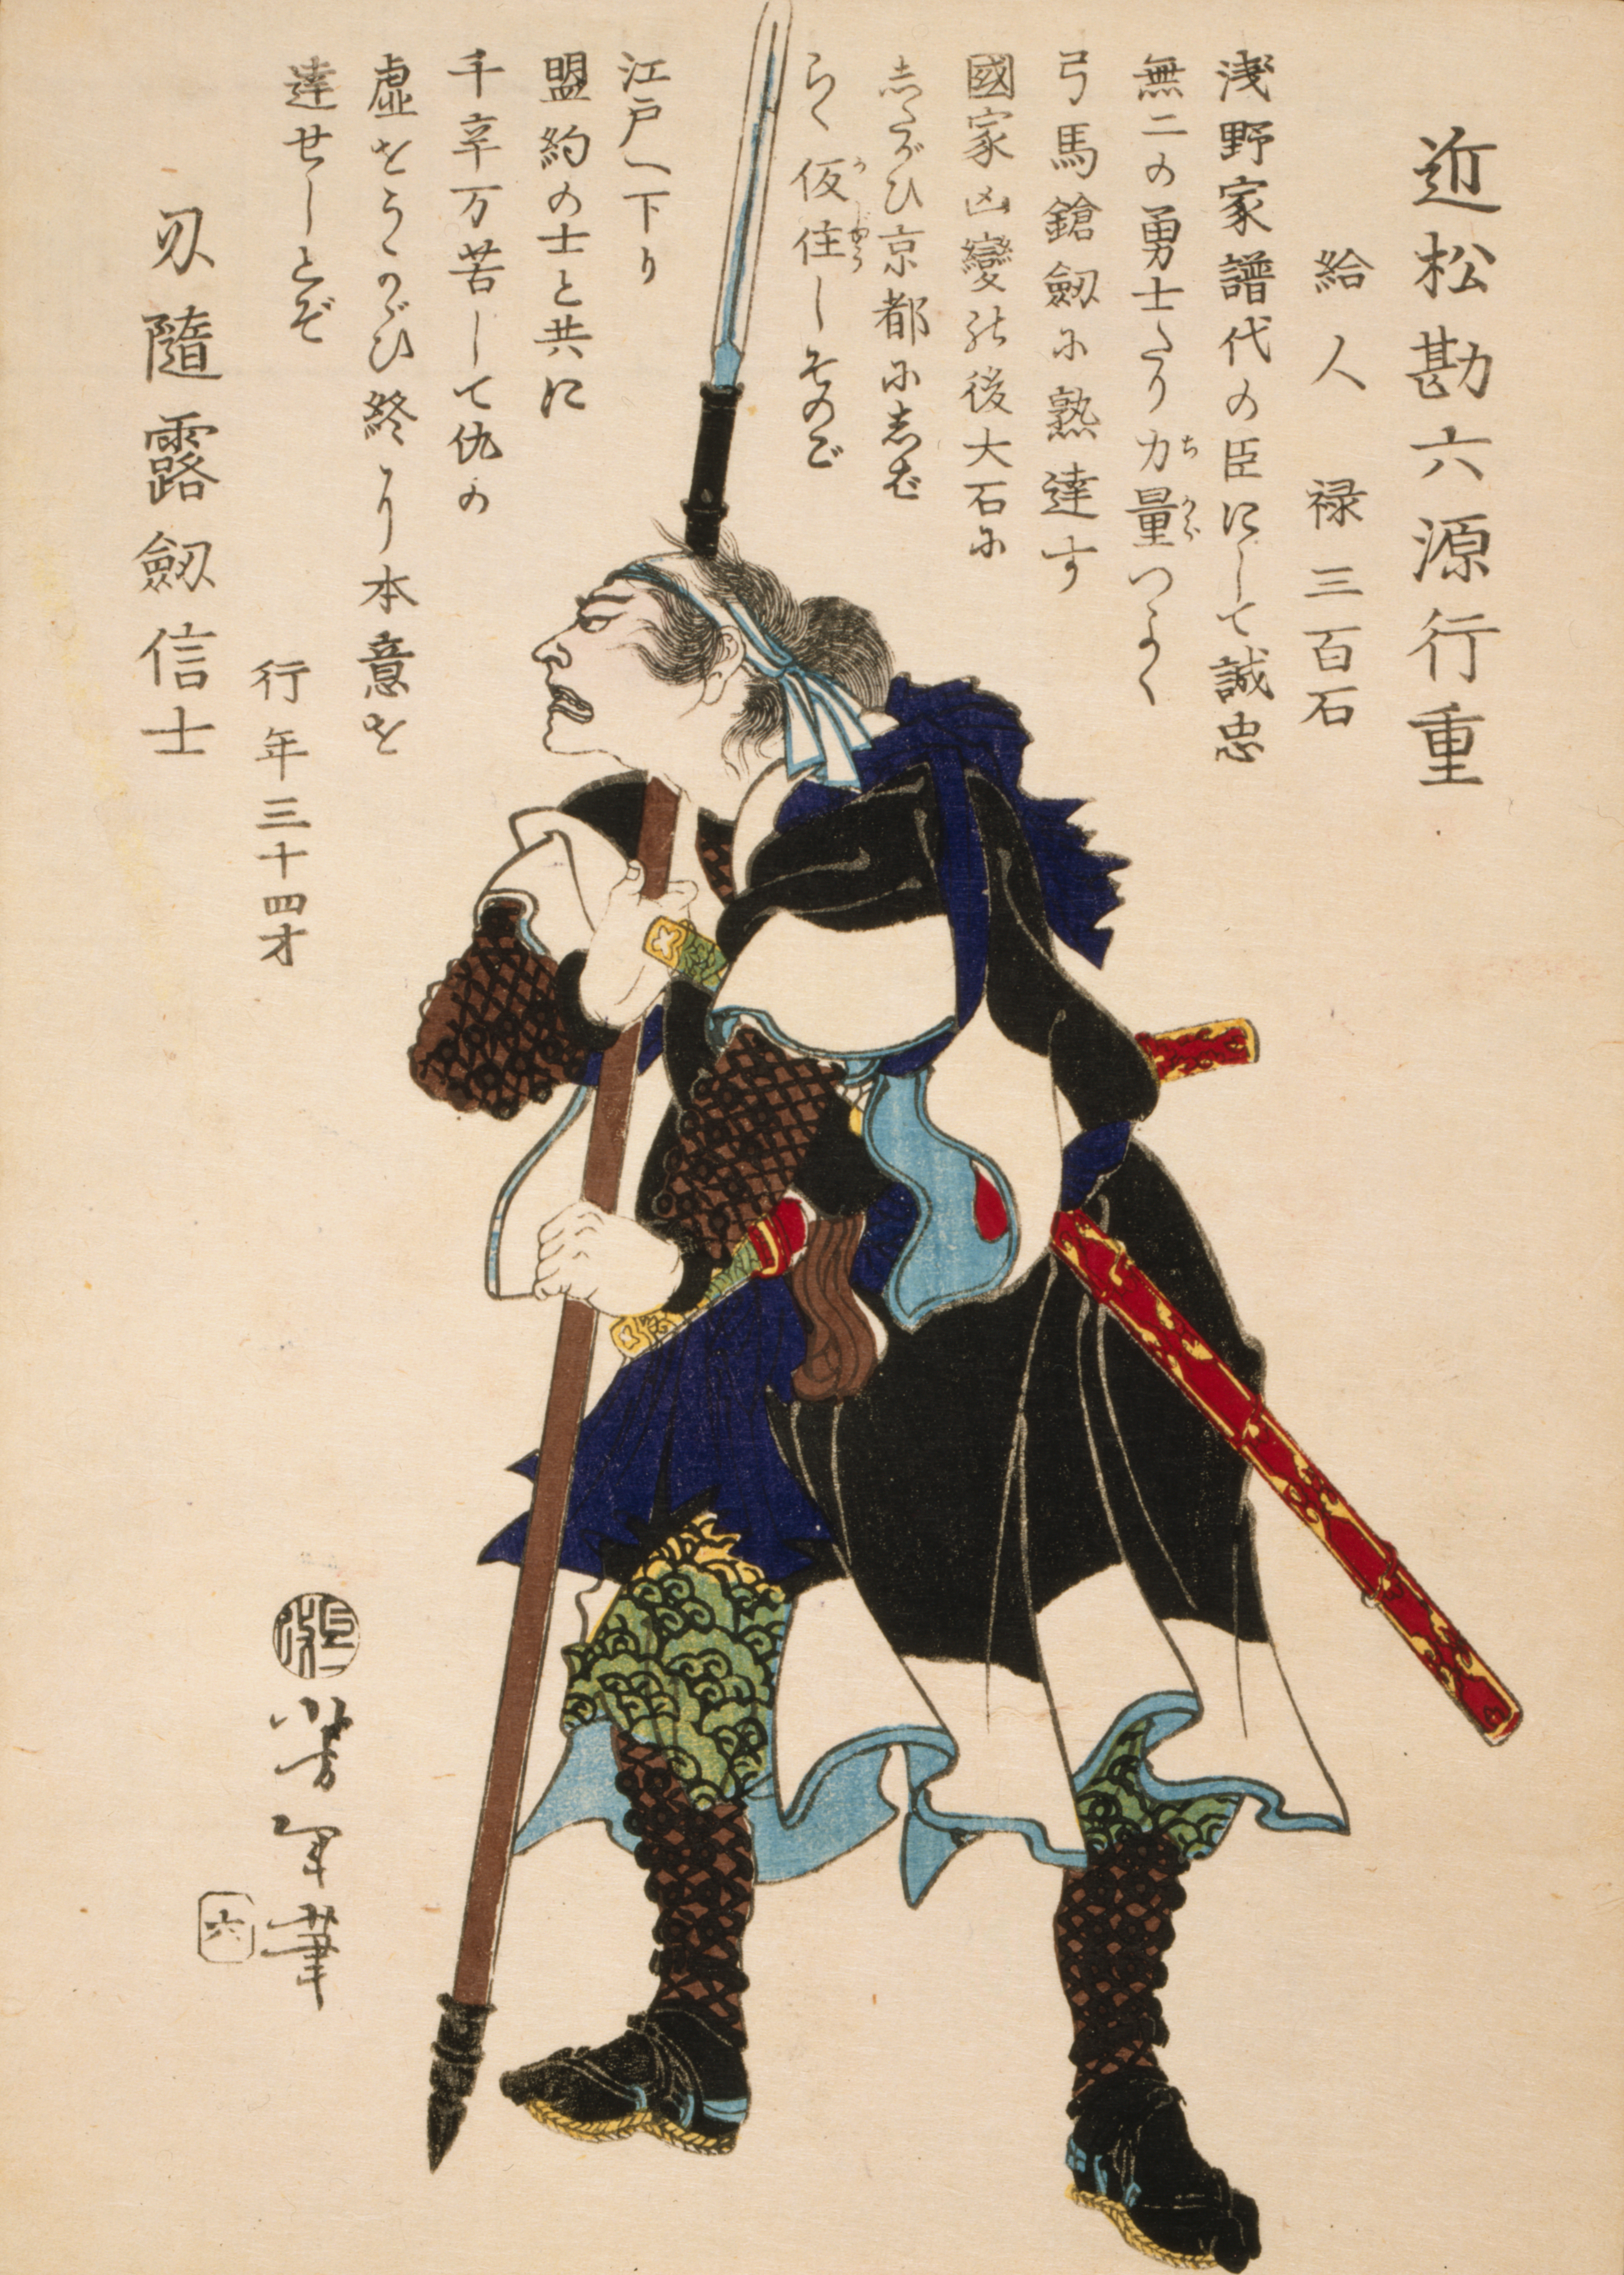 近松勘六源行重
給人　禄三百石
浅野家譜代の臣にして誠忠
無二の勇士たり力量つよく
弓馬鎗劔に熟達す
國家凶變の後大石に
志たがひ京都に志ば
らく仮住しそのご
江戸へ下り
盟約の士と共に
千辛万苦して仇の
虚をうかがひ終に本意を
達せしとぞ
行年三十四才
刃隨露劔信士
芳年筆
六